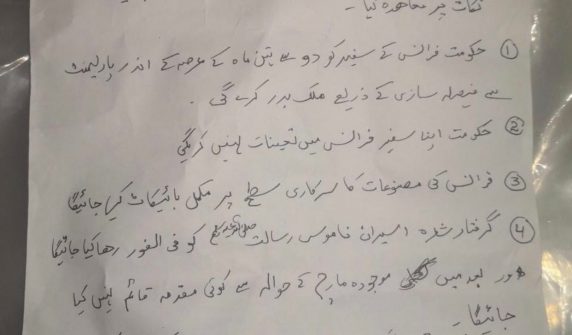 نکات پر معاہدہ کیا -
① حکومت فرانس کے سفیر کو دو سے تین ماہ کے عرصہ کے اندر پارلیمنٹ
سے فیصلہ سازی کے ذریعے ملک بدر کرے گی .
② حکومت اپنا سفیر فرانس میں تعینات نہیں کریگی
③ فرانس کی مصنوعات کا سرکاری سطح پر مکمل بائیکاٹ کیا جائیگا
④ گرفتار شدہ اسیران ناموس رسالت صلی اللہ علیہ وسلم کو فی الفور رھا کیا جائیگا
اور بعد میں موجودہ مارچ کے حوالہ سے کوئی مقدمہ قائم نہیں کیا
جائیگا -